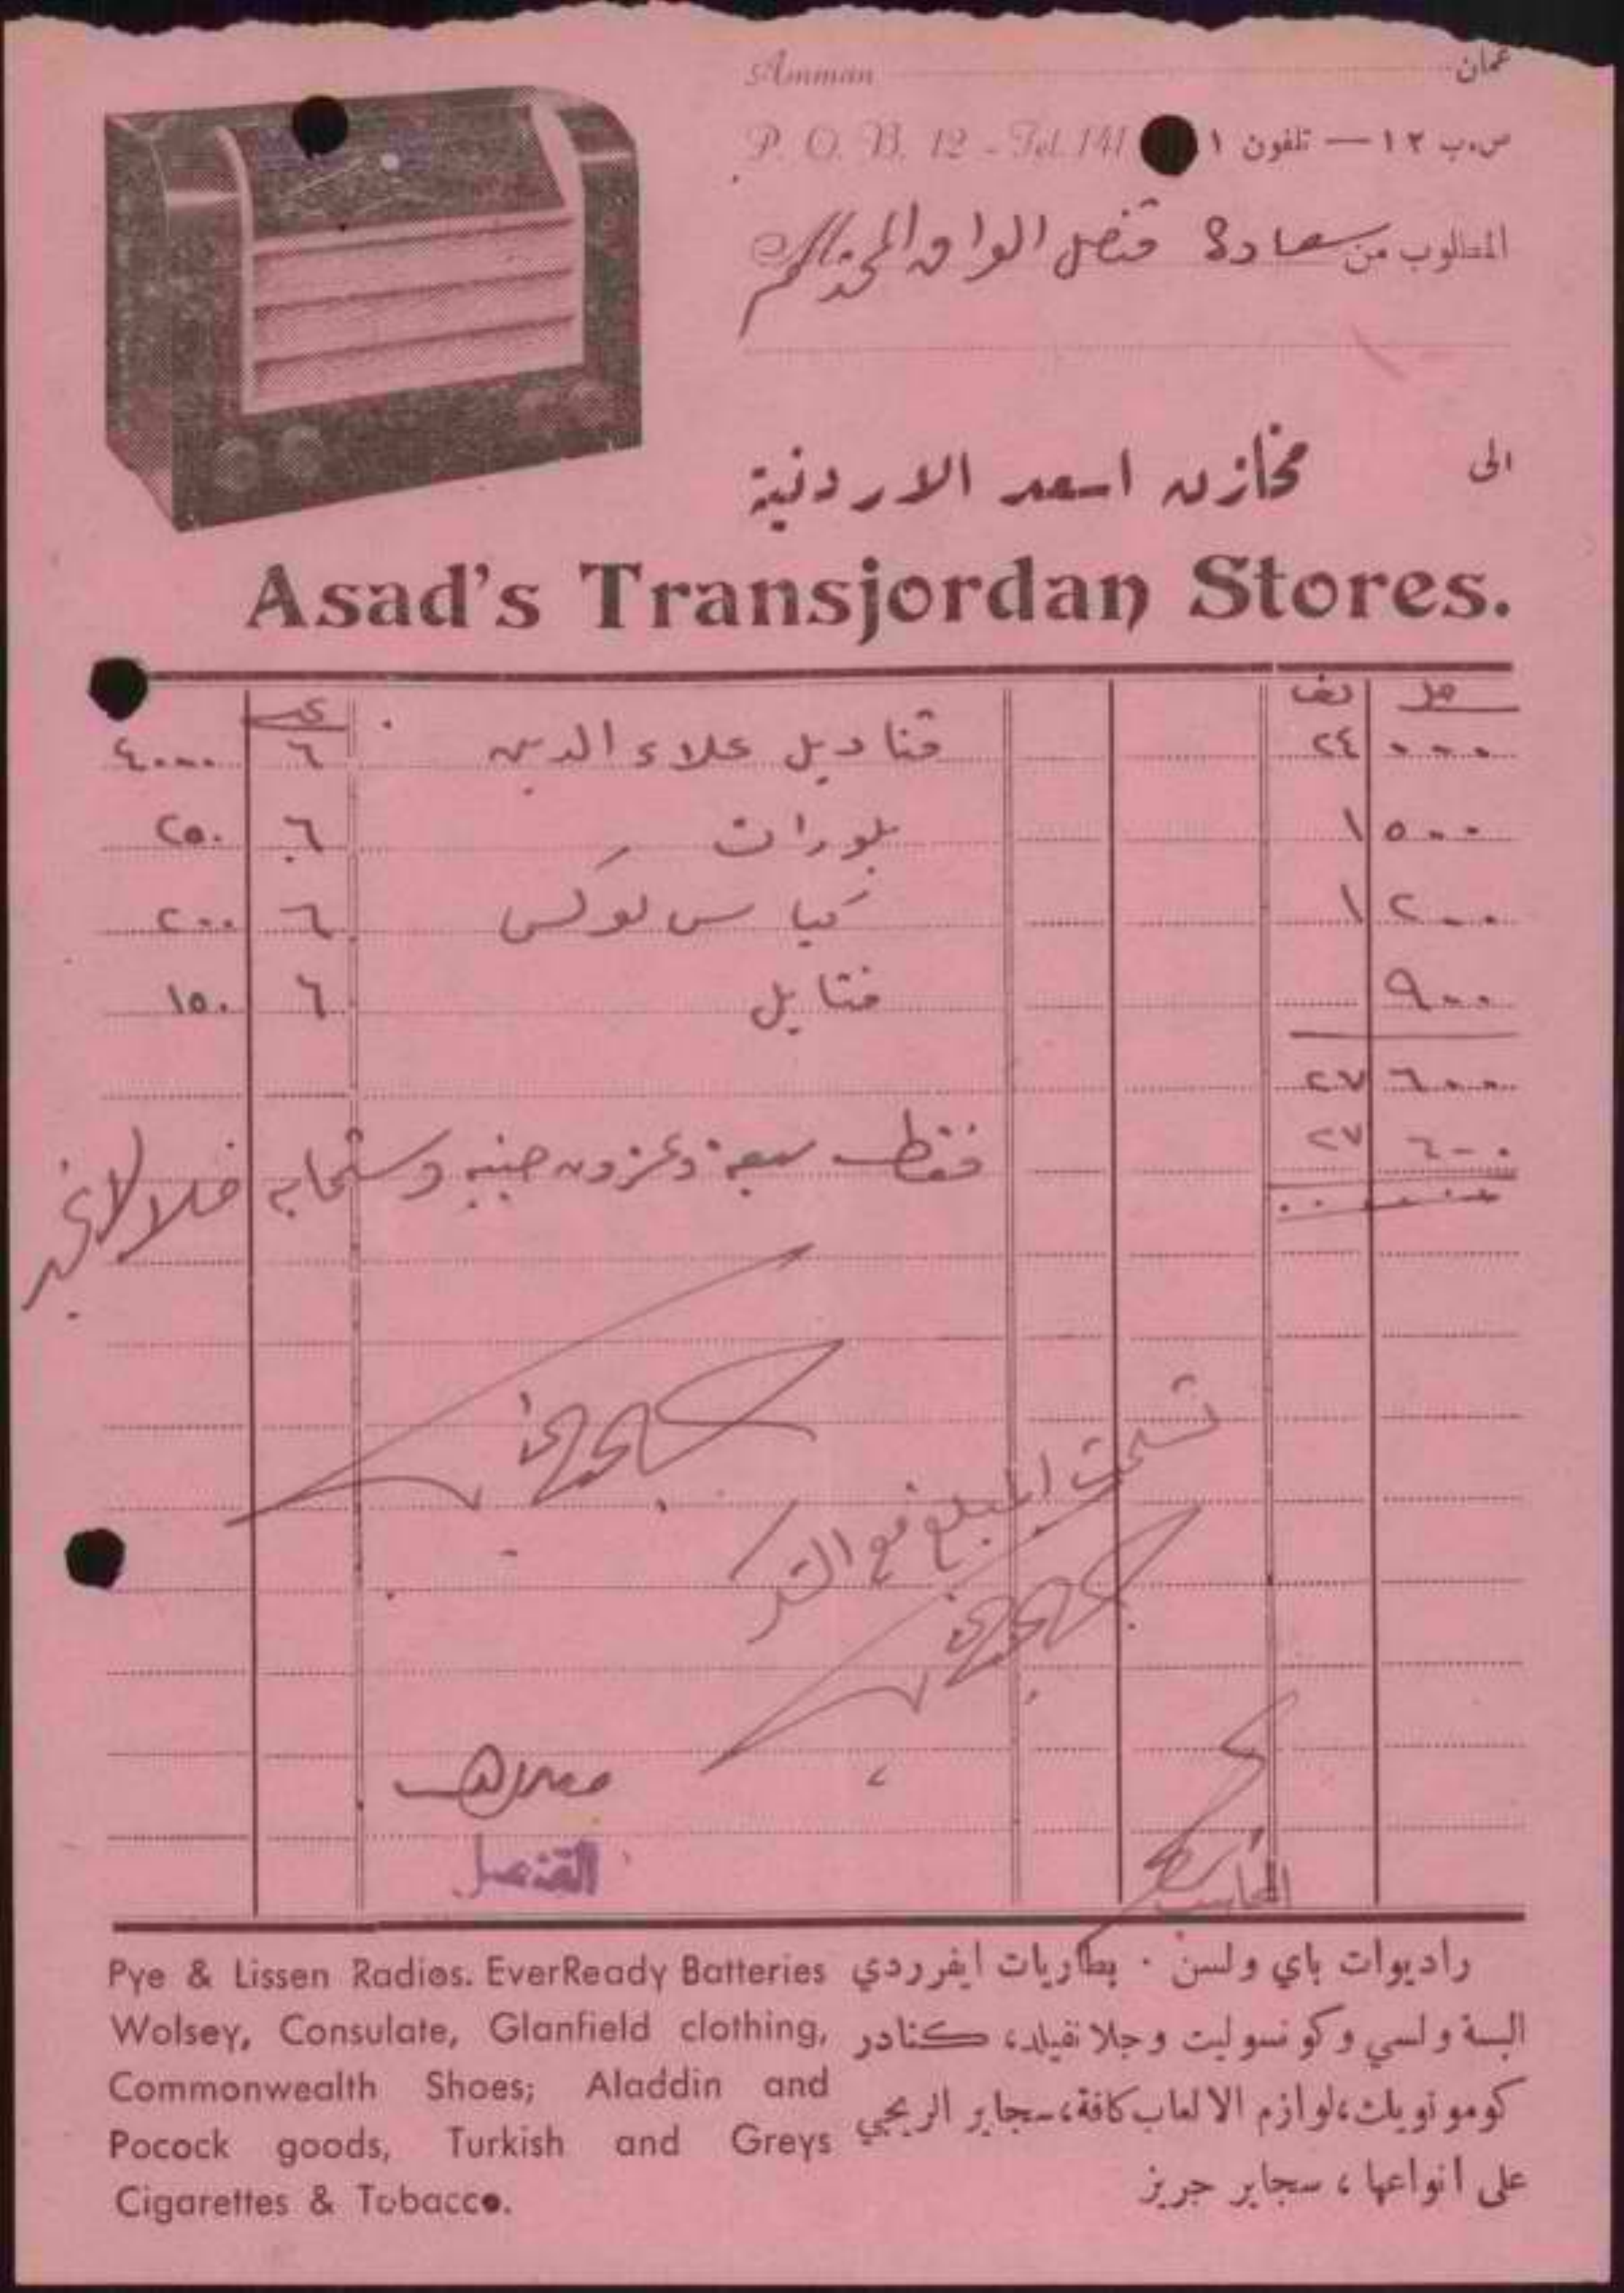 Amman عمان
P. O. B. 12 - Tel. 141 ص.ب ١٢ — تلفون ١
المطلوب من سعادة قنصل العراق المحترم
الى مخازن اسعد الاردنية
Asad's Transjordan Stores.
مل دف عدد
٠٠٠ ٢٤ قناديل علاء الدين ٦ ٤٠٠٠
٥٠٠ ١ بلورات ٦ ٢٥٠
٢٠٠ ١ كباس لوكس ٦ ٢٠٠
٩٠٠ فتايل ٦ ١٥٠
٦٠٠ ٢٧
٦٠٠ ٢٧ فقط سبعة وعشرون جنيه وستماية فلا لا غير
تسلمت المبلغ مع الشكر
القنصل
المحاسب
Pye & Lissen Radios. EverReady Batteries
Wolsey, Consulate, Glanfield clothing,
Commonwealth Shoes; Aladdin and
Pocock goods, Turkish and Greys
Cigarettes & Tobacco.
راديوات باي ولسن . بطاريات ايفرردي
البسة ولسي وكونسوليت وجلانفيلد، كنادر
كومونويلث، لوازم الالعاب كافة، سجاير الريجي
على انواعها ، سجاير جريز